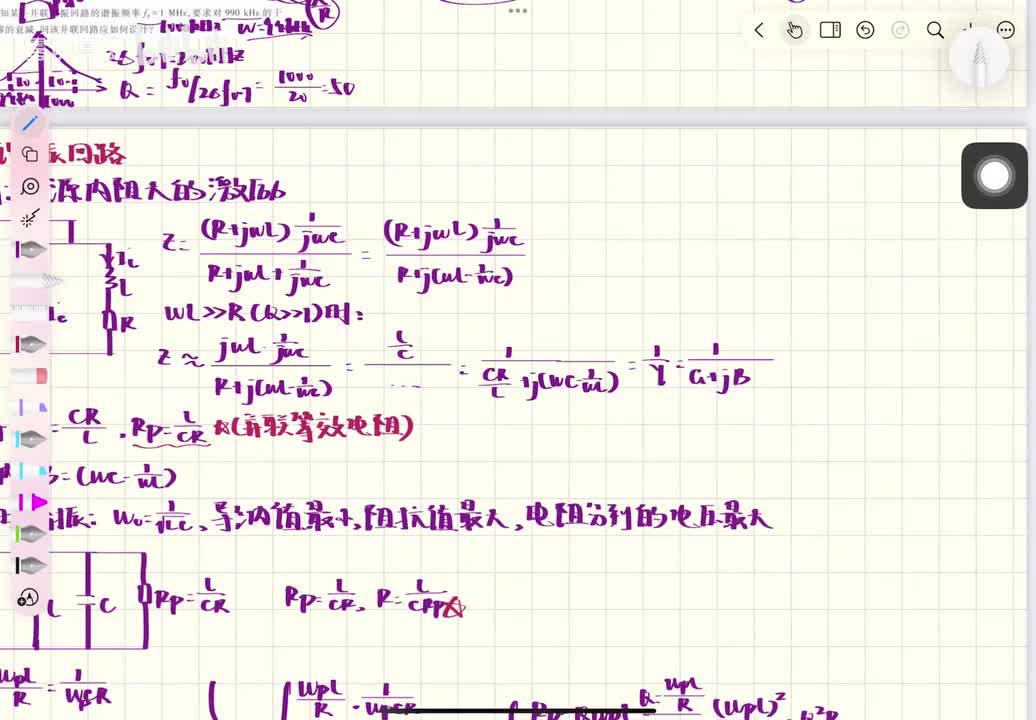 知某一并联谐振回路的谐振频率 f₀=1 MHz, 要求对 990 kHz 的干
够的衰减, 问该并联回路应如何设计?
Q = f₀/2δf₀.₇ = 1000/20 = 50
振回路
源内阻大的激励
Z = (R+jωL) 1/jωC / R+jωL+1/jωC = (R+jωL) 1/jωC / R+j(ωL-1/ωC)
Ic
L
R
ωL>>R (Q>>1)时:
Z ≈ jωL·1/jωC / R+j(ωL-1/ωC) = L/C / ... = 1 / CR/L +j(ωC-1/ωL) = 1/Y = 1/G+jB
= CR/L , Rp = L/CR ☆(并联等效电阻)
B = (ωC-1/ωL)
振: ω₀ = 1/√LC , 导纳值最小, 阻抗值最大, 电阻分到的电压最大
L
C
Rp = L/CR
Rp = L/CR , R = L/CRp ☆
ωpL/R = 1/ωpCR
ωpL/R · 1/ωpCR
Q = ωpL/R
(ωpL)²